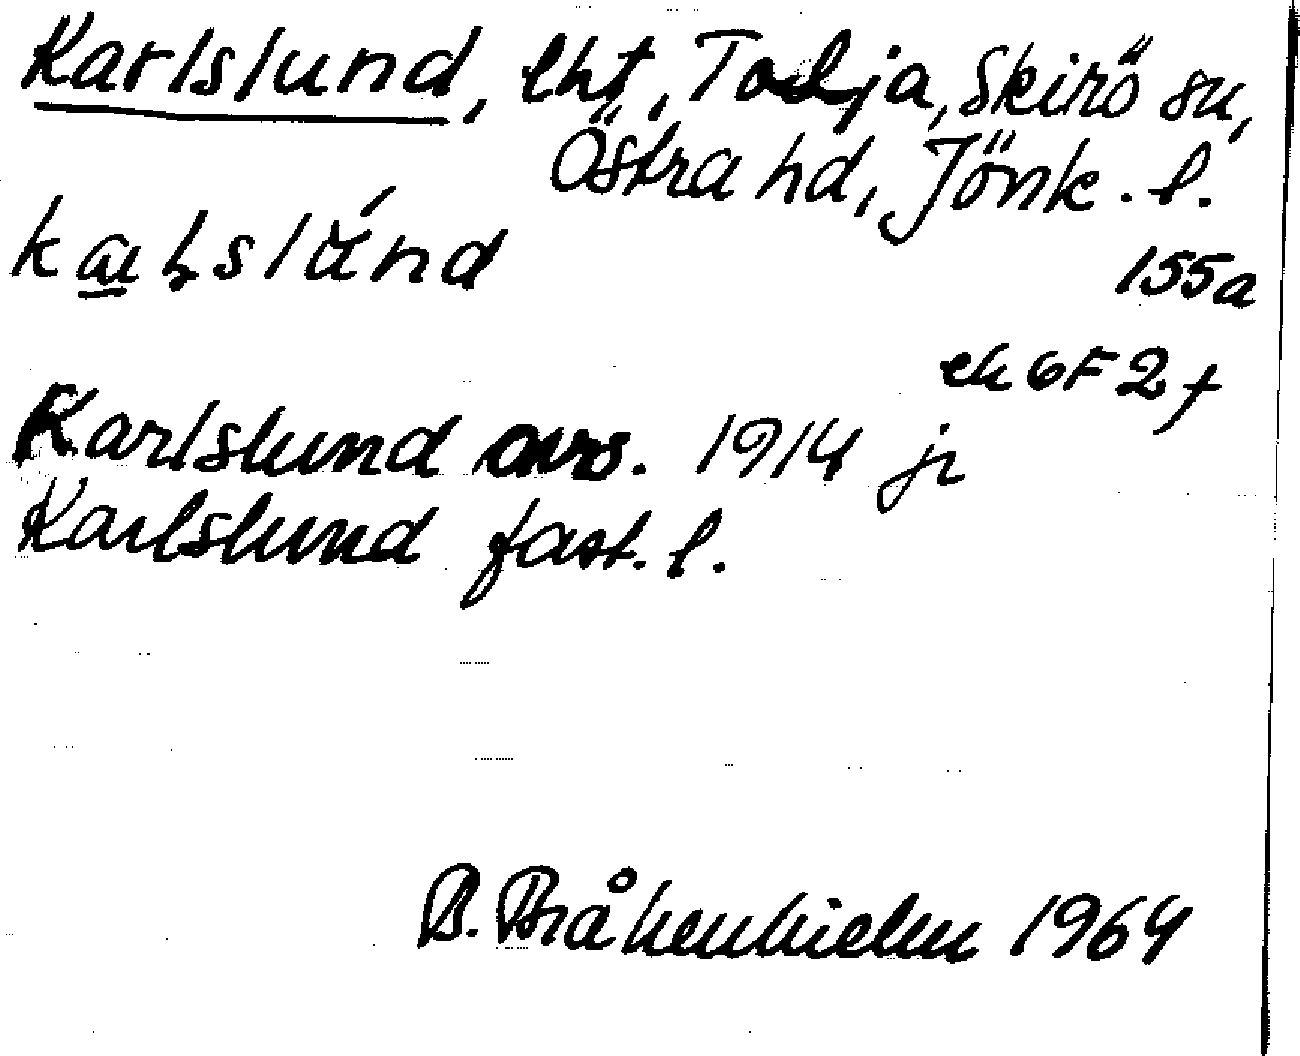 Karlslund, lht, Todja, Skirö sn,
Östra hd, Jönk. l.
155a
ek 6F 2f
Karlslund avs. 1914 jr
Karlslund fast. l.
B. Bråkenhielm 1964